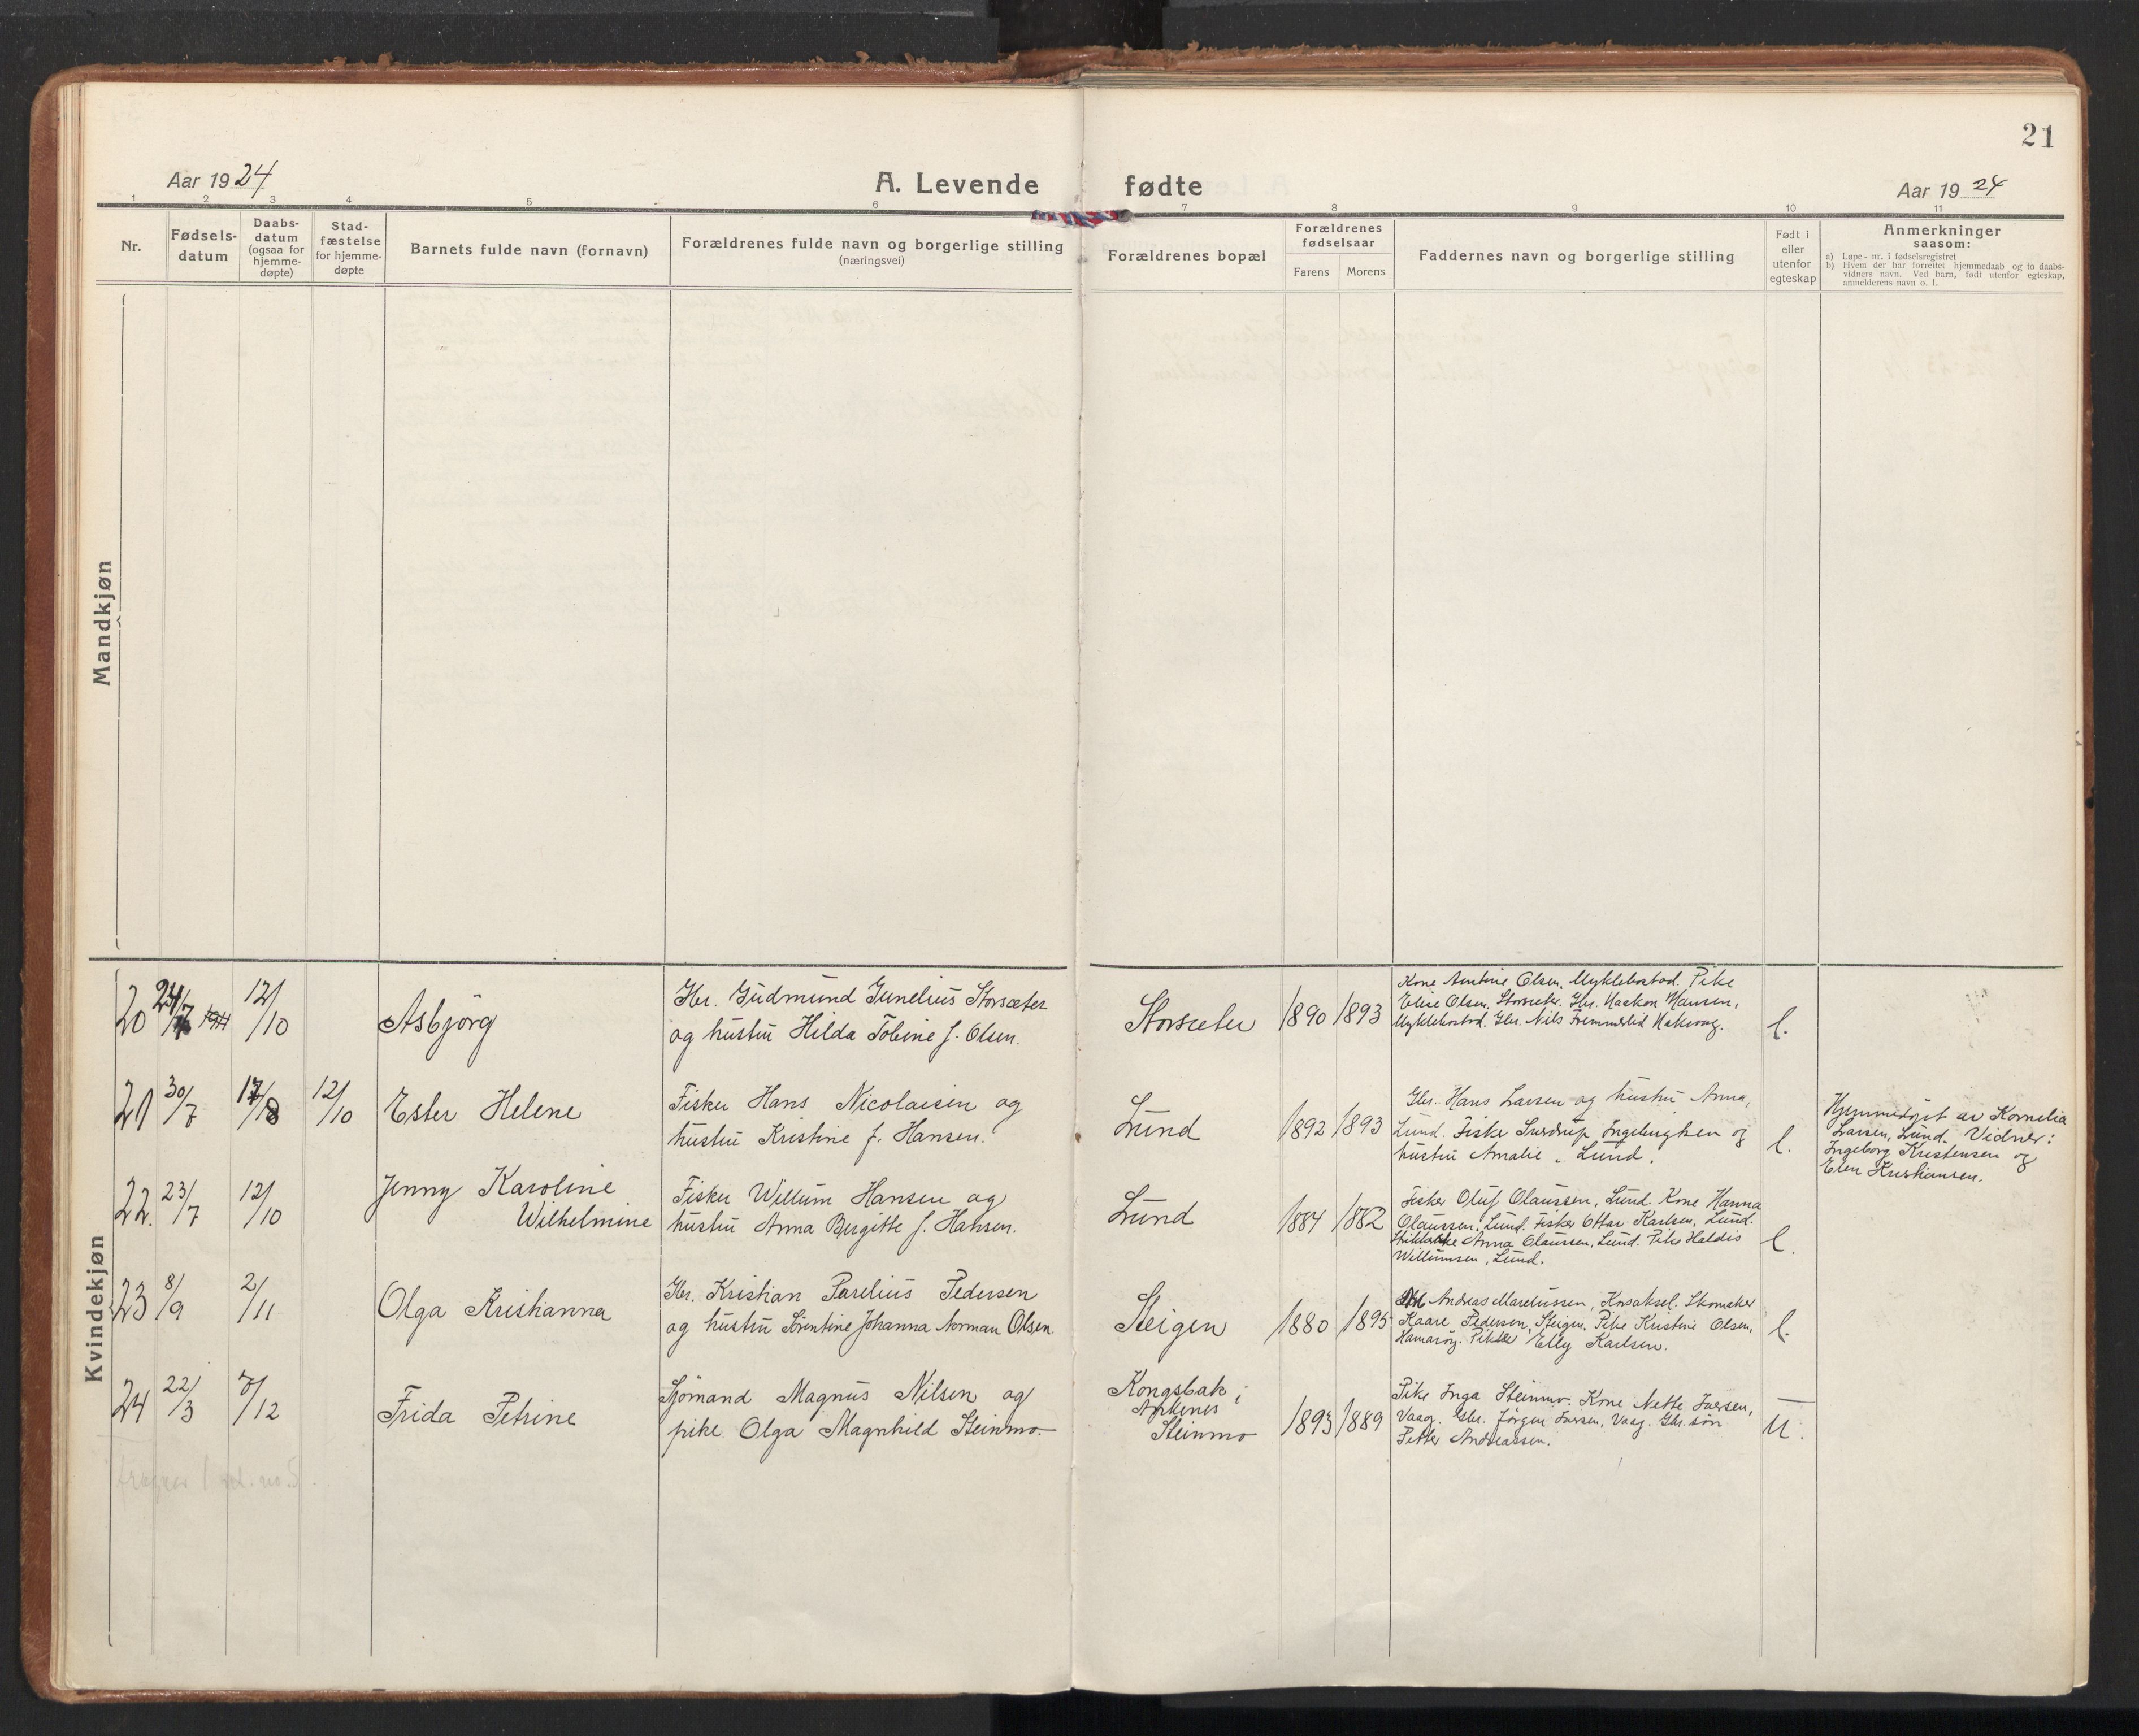 21
Aar 1924
A. Levende fødte
Aar 1924
1 2 3 4 5 6 7 8 9 10 11
Nr.
Fødsels-
datum
Daabs-
datum
(ogsaa for
hjemme-
døpte)
Stad-
fæstelse
for hjemme-
døpte
Barnets fulde navn (fornavn)
Forældrenes fulde navn og borgerlige stilling
(næringsvei)
Forældrenes bopæl
Forældrenes
fødselsaar
Farens Morens
Faddernes navn og borgerlige stilling
Født i
eller
utenfor
egteskap
Anmerkninger
saasom:
a) Løpe-nr. i fødselsregistret
b) Hvem der har forrettet hjemmedaab og to daabs-
vidners navn. Ved barn, født utenfor egteskap,
anmelderens navn o. l.
Mandkjøn
Kvindekjøn
20
24/7
12/10
Asbjörg
Gbr. Gudmund Gunelius Storsæter
og hustru Hilda Tobine f. Olsen.
Storsæter
1890 1893
Kone Amtine Olsen, Myklebostad. Pike
Elise Olsen, Storsæter. Gbr. Haakon Hansen,
Myklebostad. Gbr. Nils
l.
21
30/7
17/8
12/10
Ester Helene
Fisker Hans Nicolaisen og
hustru Kristine f. Hansen.
Lund
1892 1893
Gbr. Hans Larsen og hustru Anna,
Lund. Fisker Sverdrup Ingebrigtsen og
hustru Amalie, Lund.
l.
Hjemmedöpt av Kornelia
Larsen, Lund. Vidner:
Ingeborg Kristensen og
Elen Kristiansen.
22.
23/7
12/10
Jenny Karoline
Wilhelmine
Fisker Willum Hansen og
hustru Anna Bergitte f. Hansen.
Lund
1884 1882
Fisker Oluf Olaussen, Lund. Kone Hanna
Olaussen, Lund. Fisker Ottar Karlsen, Lund.
Anna Olaussen, Lund. Pike Haldis
Willumsen, Lund.
l.
23
8/9
2/11
Olga Kristianna
Gbr. Kristian Parelius Pedersen
og hustru Sörentine Johanna Norman Olsen.
Steigen
1880 1895
Andreas Mareliussen, Korsaksel. Skomaker
Kaare Pedersen, Steigen. Pike Kristine Olsen,
Hamaröy. Pike Elly Karlsen.
l.
24
22/3
7/12
Frida Petrine
Sjömand Magnus Nilsen og
pike Olga Magnhild Steinmo.
Kongsbak i
Ankenes
Steinmo
1893 1889
Pike Inga Steinmo. Kone Nette Iversen,
Vaag. Gbr. Jörgen Iversen, Vaag. Gbr.sön
Petter Andreassen.
U.